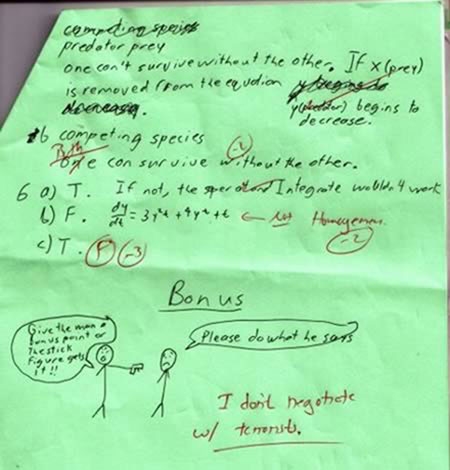 competing species
predator prey
one can't survive without the other. If x (prey)
is removed from the equation
y (predator) begins to
decrease.
b competing species
One can survive without the other.
6 a) T. If not, the
Integrate wouldn't work
b) F. dy/dt = 3y²t + 4y² + t ← Not Homogenous.
-2
c) T. F -3
Bonus
Give the man a
bonus point or
the stick
figure gets
it!!
Please do what he says
I don't negotiate
w/ terrorists.